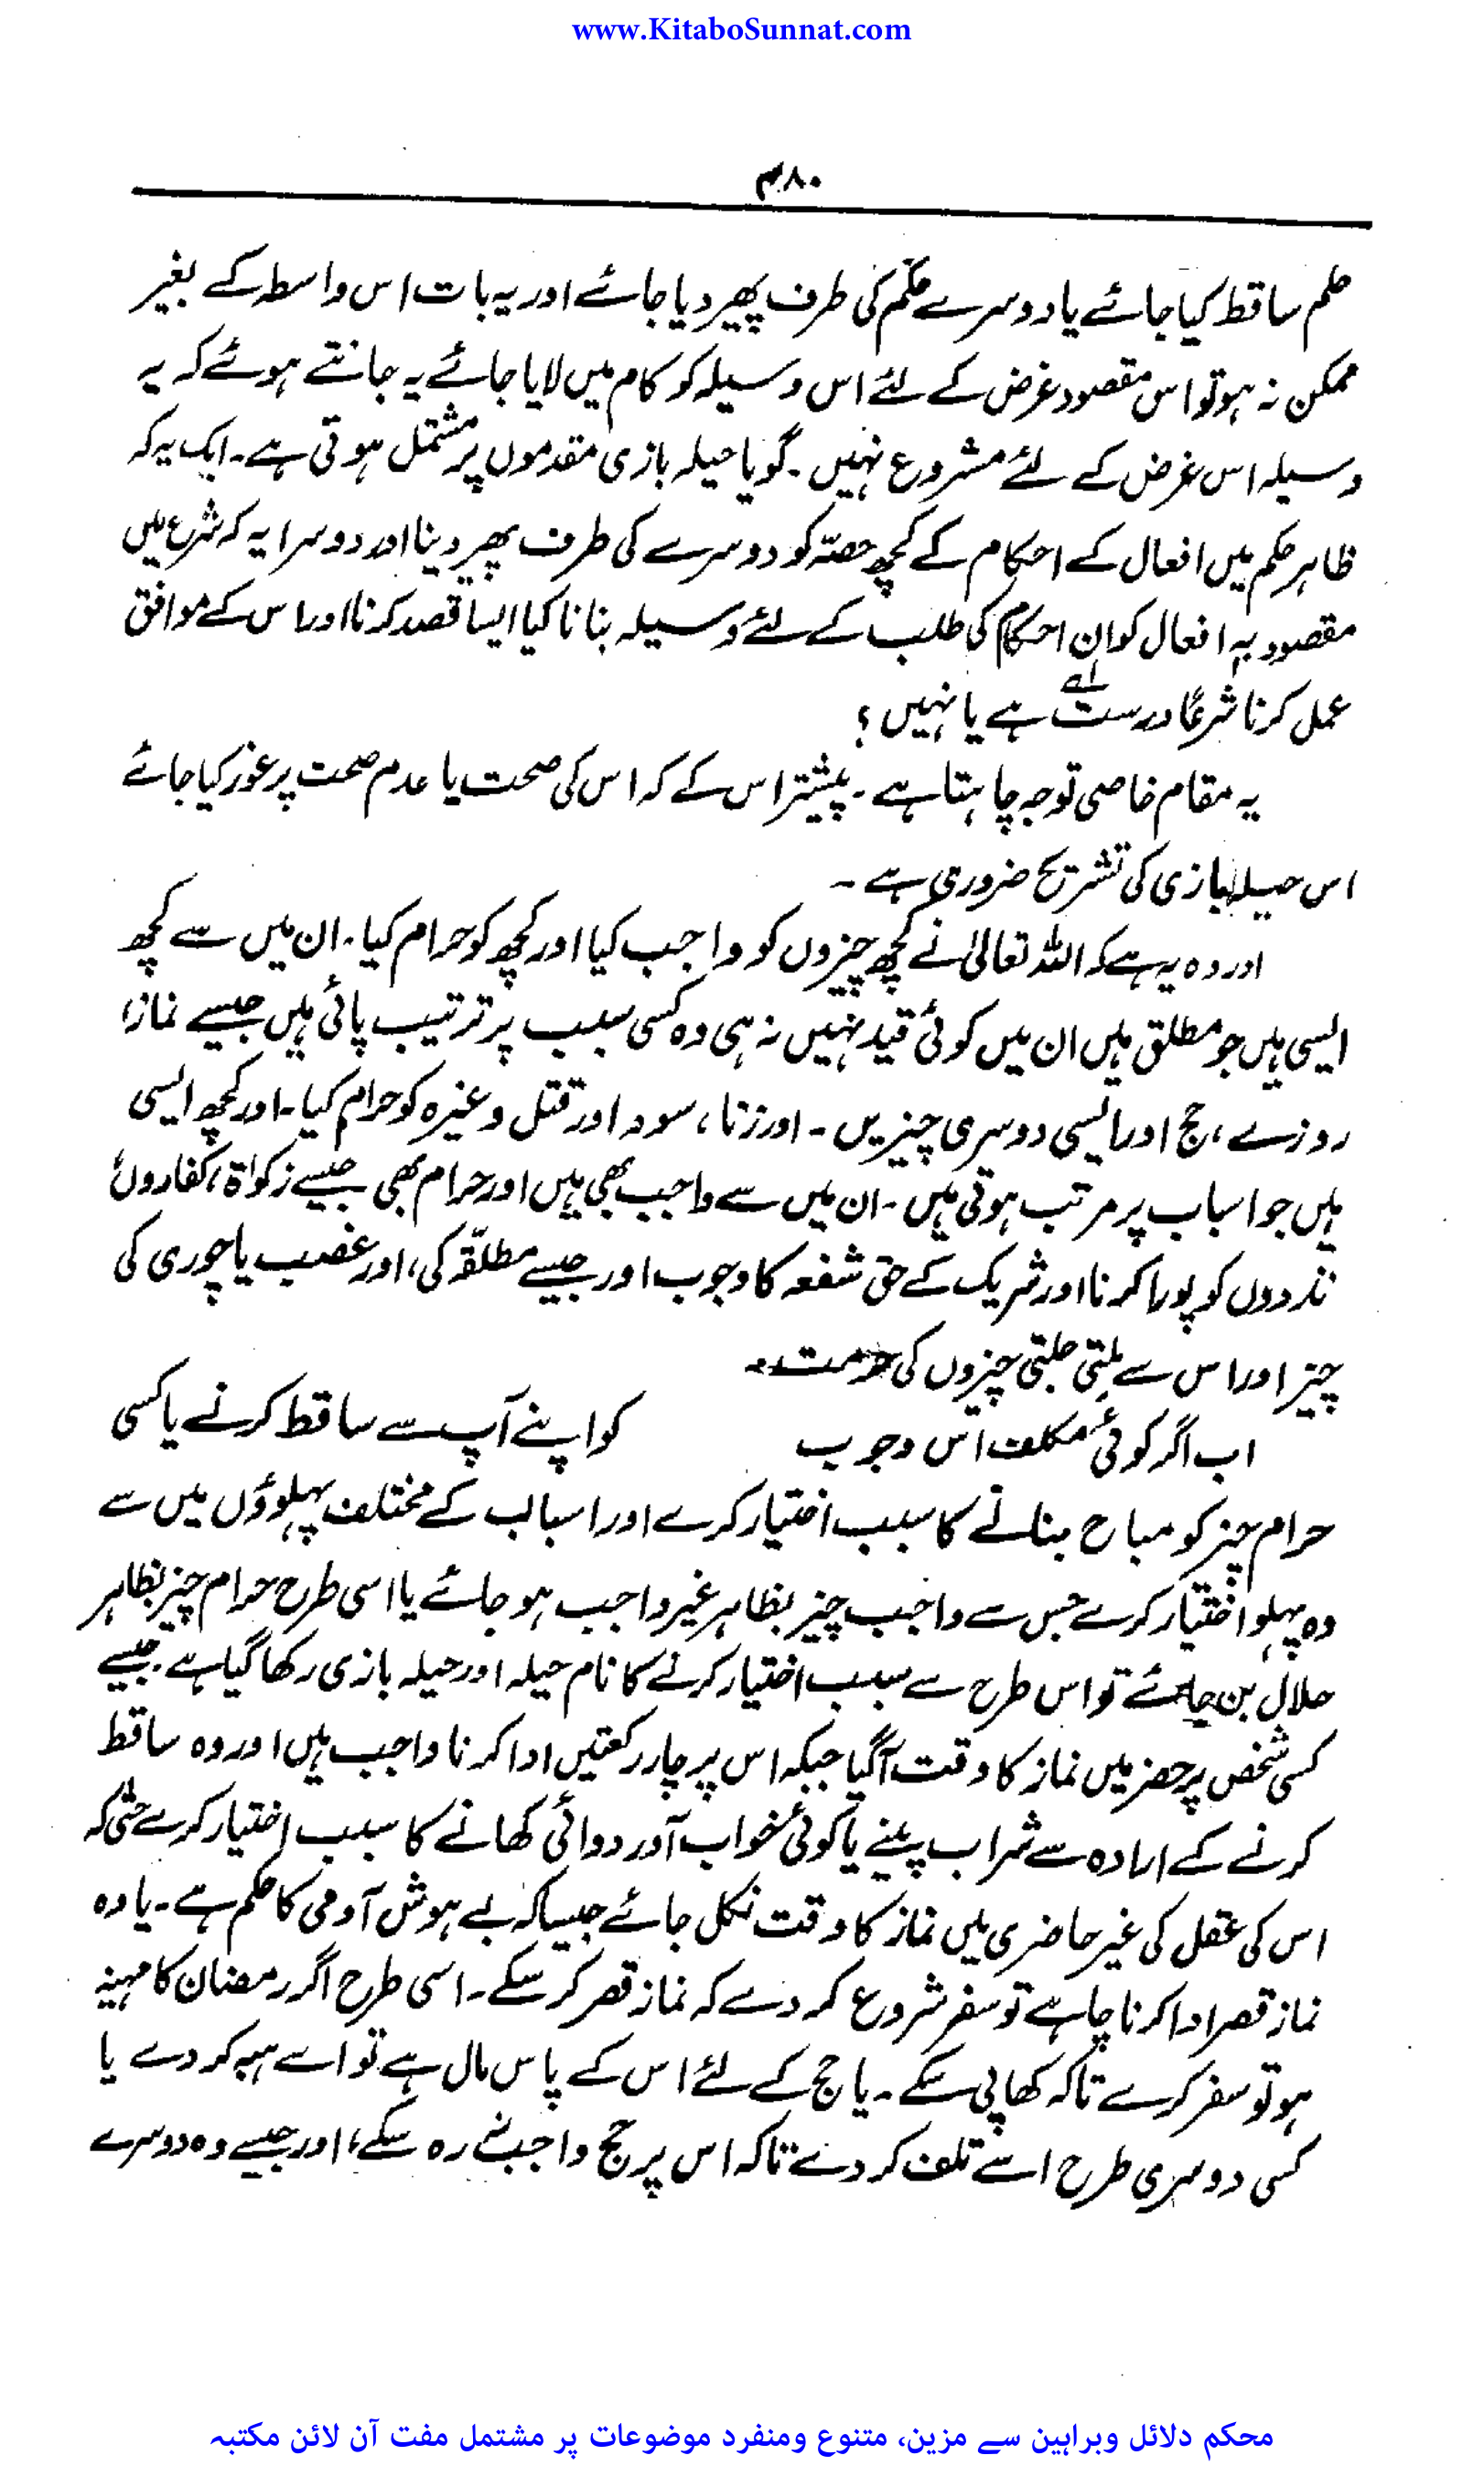 www.KitaboSunnat.com
۴۸۰
حکم ساقط کیا جائے یا دوسرے حکم کی طرف پھیر دیا جائے اور یہ بات اس واسطہ کے بغیر
ممکن نہ ہو تو اس مقصود غرض کے لئے اس وسیلہ کو کام میں لایا جائے یہ جانتے ہوئے کہ یہ
وسیلہ اس غرض کے لئے مشروع نہیں ۔ گویا حیلہ بازی مقدموں پر مشتمل ہوتی ہے ۔ ایک یہ کہ
ظاہر حکم میں افعال کے احکام کے کچھ حصہّ کو دوسرے کی طرف پھیر دینا اور دوسرا یہ کہ شرع میں
مقصود بہ افعال کو ان احکام کی طلب کے لئے وسیلہ بنانا کیا ایسا قصد کرنا اور اس کے موافق
عمل کرنا شرعًا درست لہ ہے یا نہیں ؟
یہ مقام خاصی توجہ چاہتا ہے ۔ پیشتر اس کے کہ اس کی صحت یا عدم صحت پر غور کیا جائے
اس حیلہ بازی کی تشریح ضروری ہے ۔
اور وہ یہ ہے کہ اللہ تعالیٰ نے کچھ چیزوں کو واجب کیا اور کچھ کو حرام کیا ۔ ان میں سے کچھ
ایسی ہیں جو مطلق ہیں ان میں کوئی قید نہیں نہ ہی وہ کسی سبب پر ترتیب پائی ہیں جیسے نماز،
روزے ، حج اور ایسی دوسری چیزیں ۔ اور زنا ، سود اور قتل وغیرہ کو حرام کیا ۔ اور کچھ ایسی
ہیں جو اسباب پر مرتب ہوتی ہیں ۔ ان میں سے واجب بھی ہیں اور حرام بھی جیسے زکوٰۃ ، کفاروں،
نذروں کو پورا کرنا اور شریک کے حق شفعہ کا وجوب اور جیسے مطلقّہ کی ، اور غصب یا چوری کی
چیز اور اس سے ملتی جلتی چیزوں کی حرمت ۔
اب اگر کوئی مکلف اس وجوب کو اپنے آپ سے ساقط کرنے یا کسی
حرام چیز کو مباح بنانے کا سبب اختیار کرے اور اسباب کے مختلف پہلوؤں میں سے
وہ پہلو اختیار کرے جس سے واجب چیز بظاہر غیر واجب ہو جائے یا اسی طرح حرام چیز بظاہر
حلال بن جائے تو اس طرح سے سبب اختیار کرنے کا نام حیلہ اور حیلہ بازی رکھا گیا ہے ۔ جیسے
کسی شخص پر حضر میں نماز کا وقت آگیا جبکہ اس پر چار رکعتیں ادا کرنا واجب ہیں اور وہ ساقط
کرنے کے ارادہ سے شراب پینے یا کوئی خواب آور دوائی کھانے کا سبب اختیار کرے حتٰی کہ
اس کی عقل کی غیر حاضری میں نماز کا وقت نکل جائے جیسا کہ بے ہوش آدمی کا حکم ہے ۔ یا وہ
نماز قصر ادا کرنا چاہے تو سفر شروع کر دے کہ نماز قصر کر سکے ۔ اسی طرح اگر رمضان کا مہینہ
ہو تو سفر کرے تاکہ کھا پی سکے ۔ یا حج کے لئے اس کے پاس مال ہے تو اسے ہبہ کر دے یا
کسی دوسری طرح اسے تلف کر دے تاکہ اس پر حج واجب نہ رہ سکے ، اور جیسے وہ دوسرے
محکم دلائل وبراہین سے مزین، متنوع ومنفرد موضوعات پر مشتمل مفت آن لائن مکتبہ